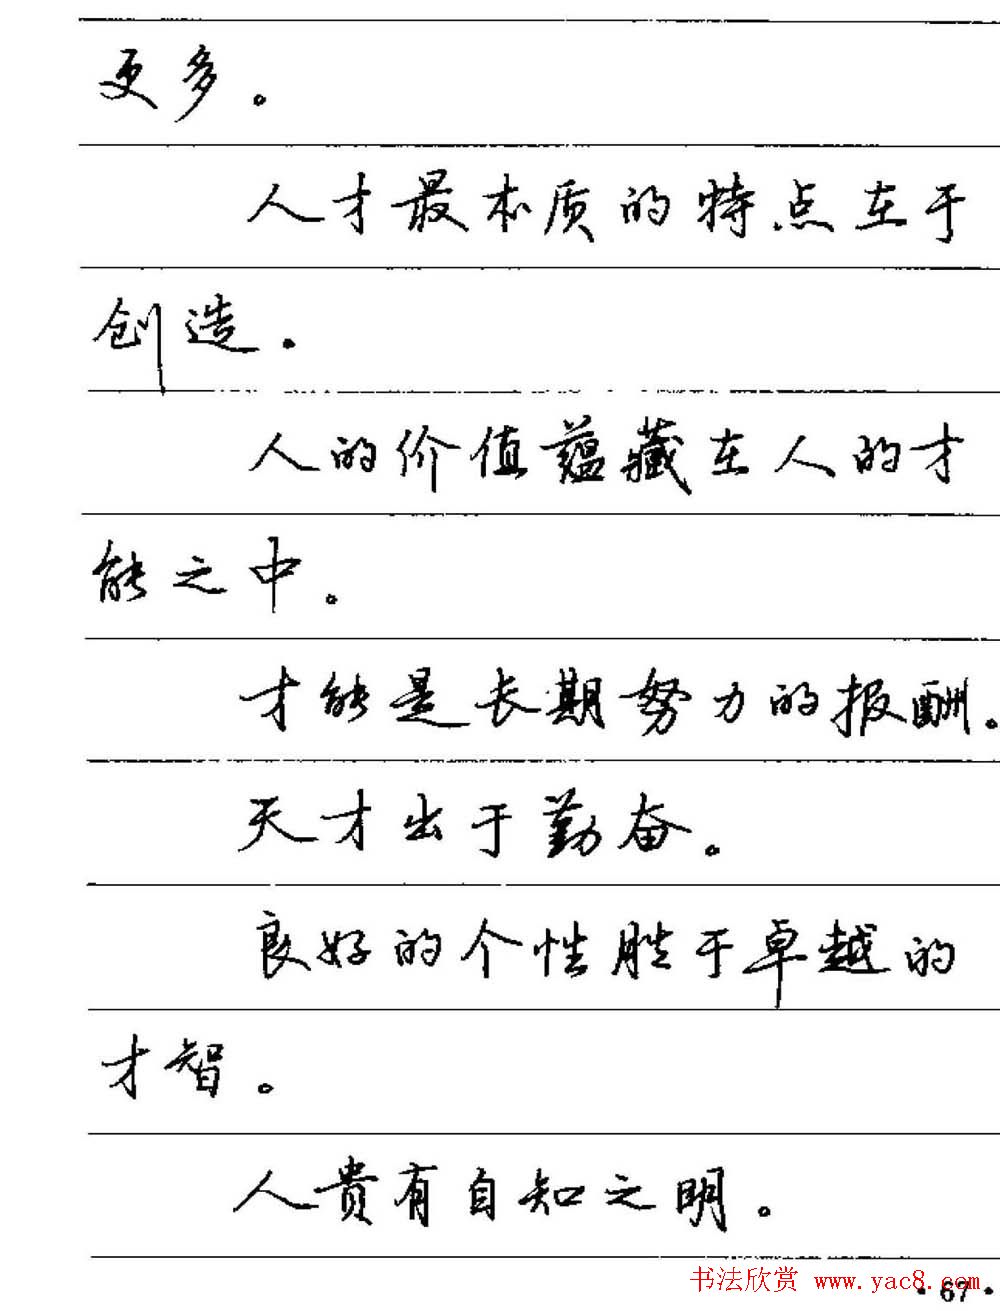 更多。
人才最本质的特点在于
创造。
人的价值蕴藏在人的才
能之中。
才能是长期努力的报酬。
天才出于勤奋。
良好的个性胜于卓越的
才智。
人贵有自知之明。
书法欣赏 www.yac8.com
·67·